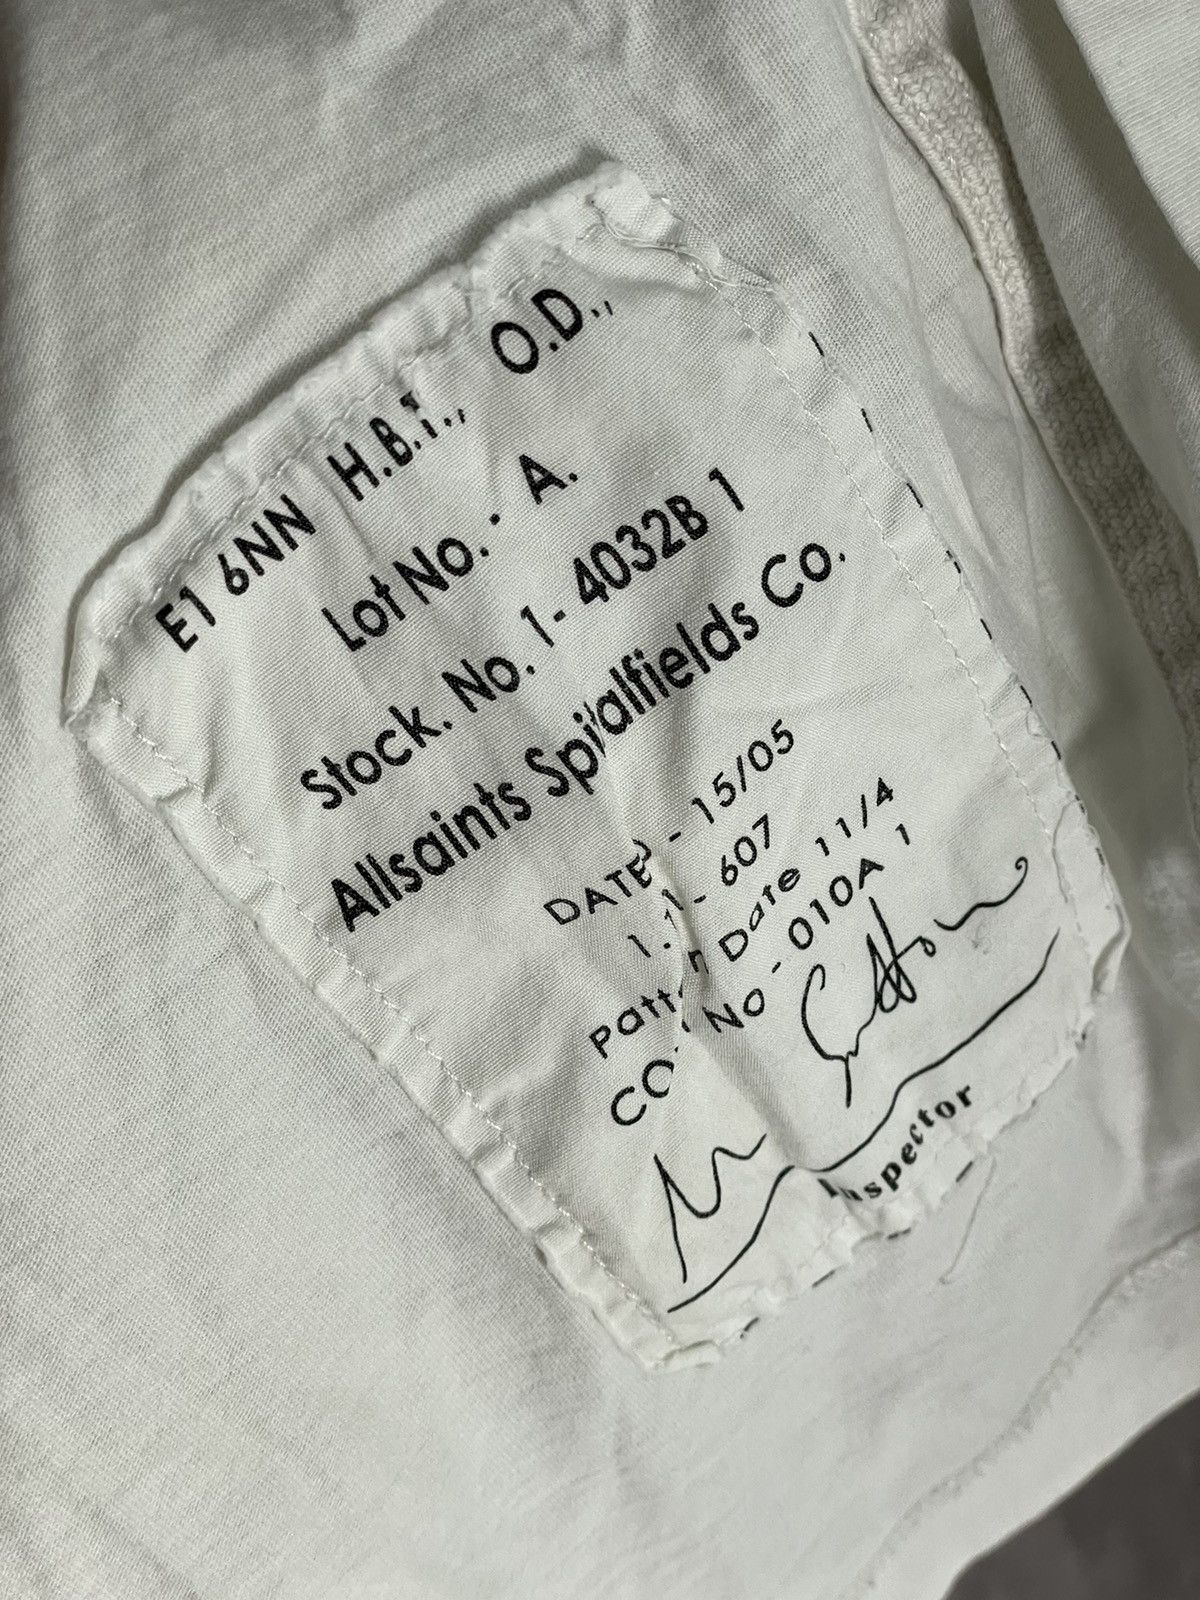 E1 6NN H.B.T., O.D.,
Lot No. - A.
Stock. No. 1- 4032B 1
Allsaints Spitalfields Co.
DATED - 15/05
1.1 - 607
Pattern Date 11/4
NO - 010A 1
Inspector